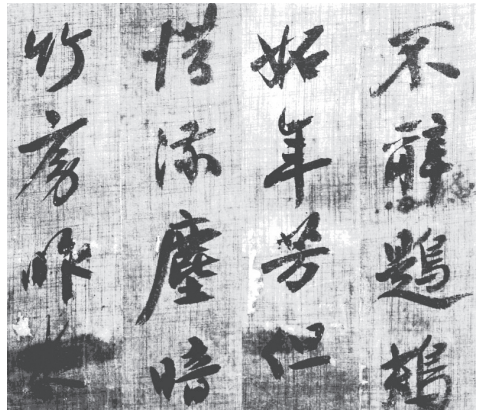 不辭鶗鴂
妬年芳但
惜流塵暗
竹房昨